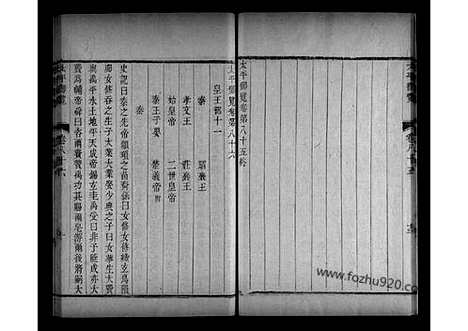 太平御覽卷第八十五終
太平御覽卷第八十六
皇王部十一
秦 昭襄王
孝文王 莊襄王
始皇帝 二世皇帝
秦王子嬰 楚義帝附
秦
史記曰秦之先帝顓頊之苗裔孫曰女脩女脩織玄鳥隕
卵女脩吞之生子大業大業娶少典之子曰女華生大費
與禹平水土地平天成帝錫玄圭禹受曰非予能成亦大
費為輔帝舜曰咨爾費贊禹功其賜爾皁游爾後將嗣大
太平御覽
www.fozhu920.com